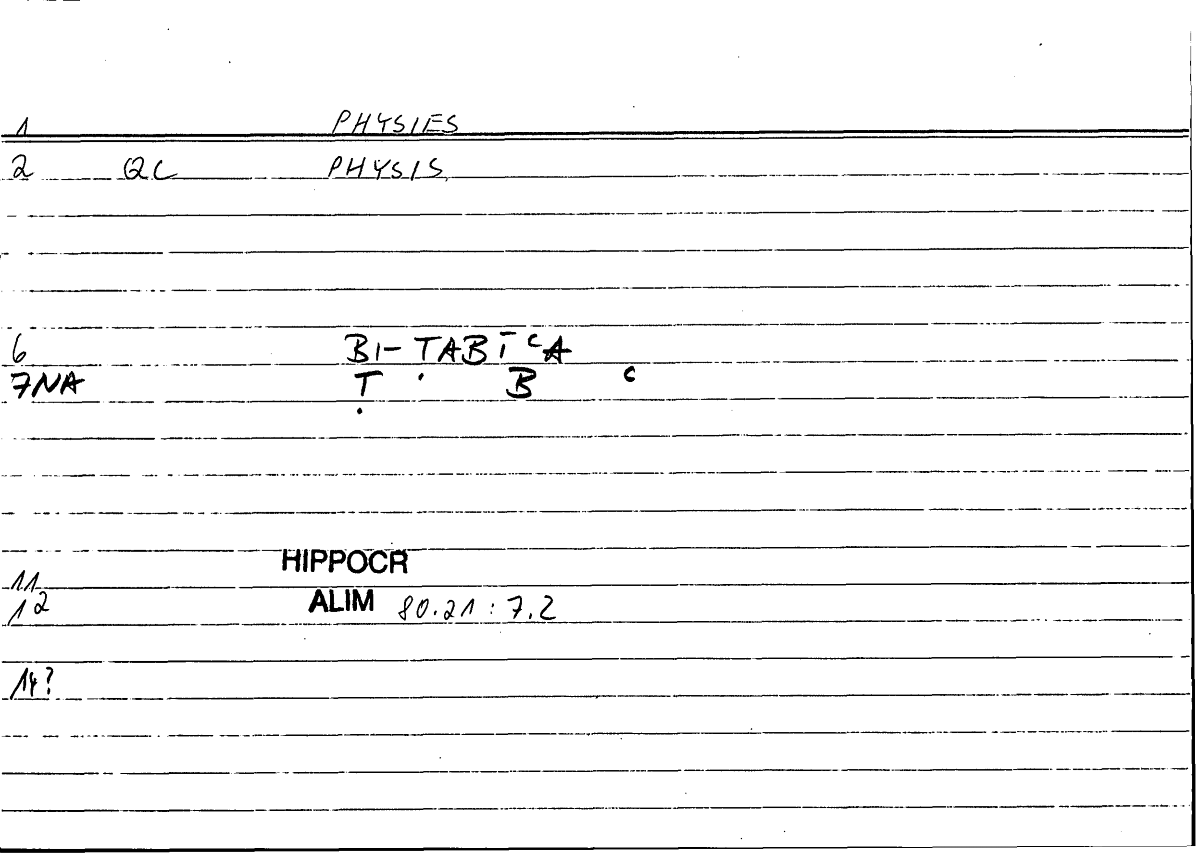 1 PHYSIES
2 QC PHYSIS
6 BI- TABĪ ᶜA
7NA Ṭ . B c
HIPPOCR
11
12 ALIM 80.21:7.2
14?